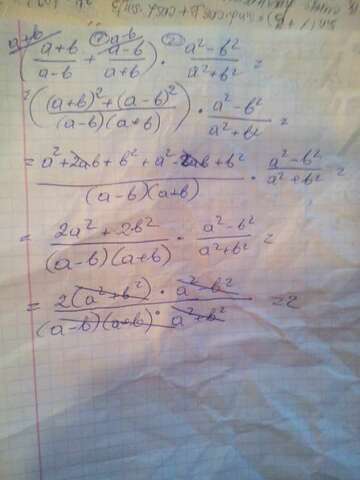 sin(1+β)=sinβ·cosβ+cosβ·sinβ
a+b a-b
(a+b/a-b + a-b/a+b) · a²-b²/a²+b² =
=((a+b)²+(a-b)²/(a-b)(a+b)) · a²-b²/a²+b² =
= a²+2ab+b²+a²-2ab+b²/(a-b)(a+b) · a²-b²/a²+b² =
= 2a²+2b²/(a-b)(a+b) · a²-b²/a²+b² =
= 2(a²+b²) · a²-b²/(a-b)(a+b) · a²+b² =2